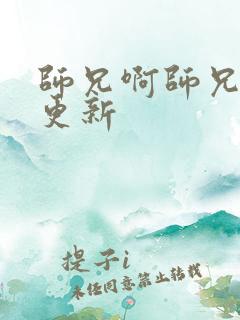 師兄啊師兄
更新
提子i
未經同意禁止轉載